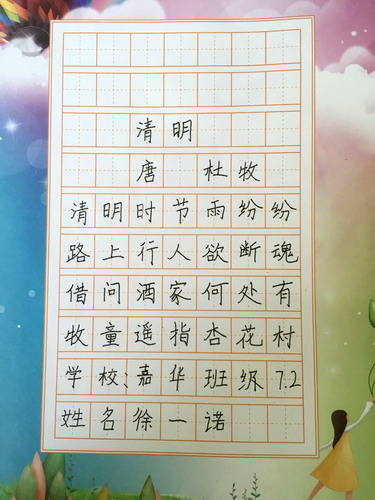 清明
唐 杜牧
清明时节雨纷纷
路上行人欲断魂
借问酒家何处有
牧童遥指杏花村
学校:嘉华班级7.2
姓名徐一诺